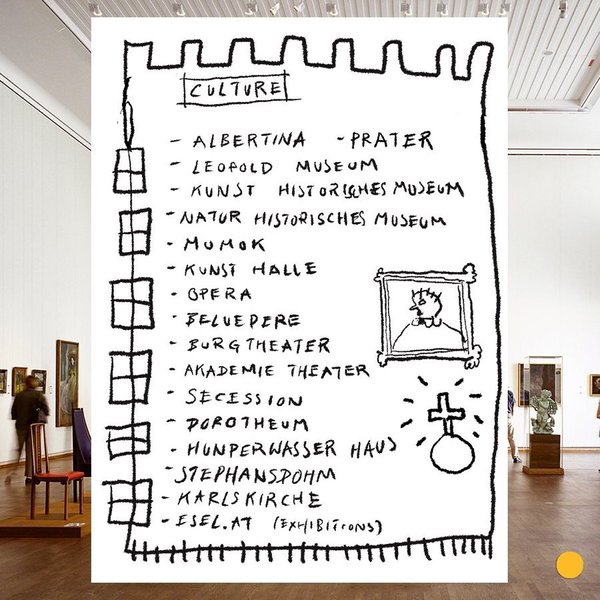 CULTURE
- ALBERTINA - PRATER
- LEOPOLD MUSEUM
- KUNST HISTORISCHES MUSEUM
- NATUR HISTORISCHES MUSEUM
- MUMOK
- KUNST HALLE
- OPERA
- BELVEDERE
- BURGTHEATER
- AKADEMIE THEATER
- SECESSION
- DOROTHEUM
- HUNDERWASSER HAUS
- STEPHANSDOHM
- KARLSKIRCHE
- ESEL.AT (EXHIBITIONS)